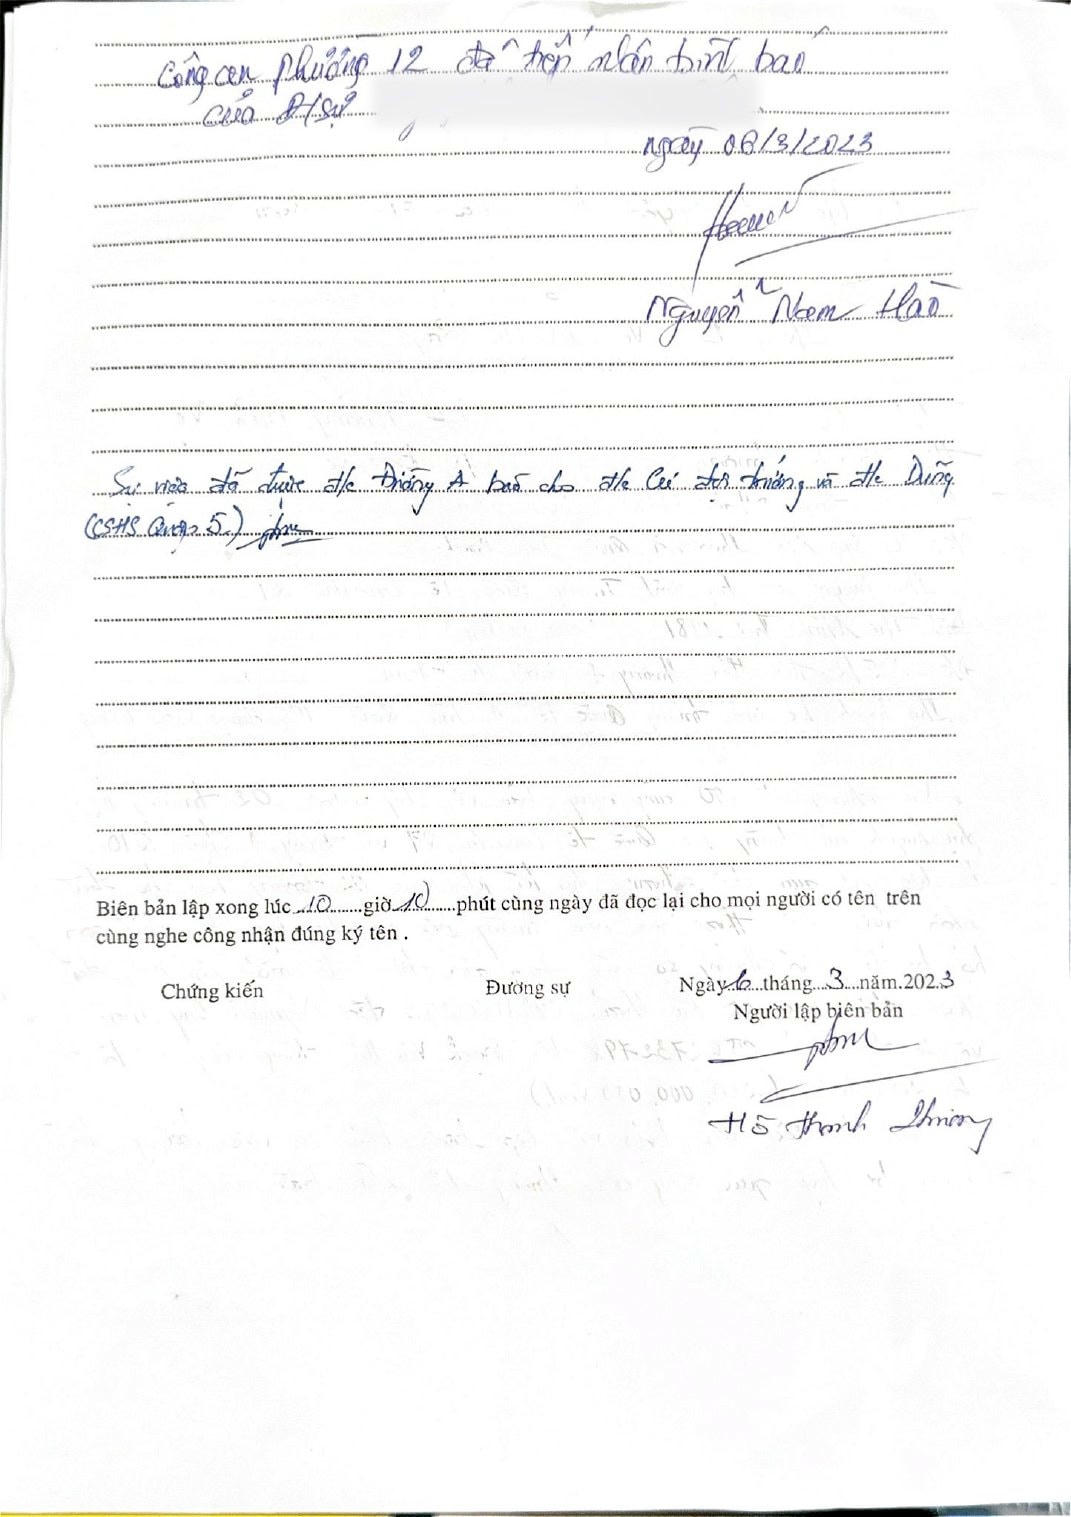 Công an phường 12 đã tiếp nhận trình báo
của Đ/sự
ngày 06/3/2023
Nguyễn Nam Hào
Sự việc đã được đ/c Trường A báo cho đ/c đội trưởng và đ/c Dũng
(CSHS Quận 5.)
Biên bản lập xong lúc 10 giờ 10 phút cùng ngày đã đọc lại cho mọi người có tên trên
cùng nghe công nhận đúng ký tên .
Chứng kiến
Đương sự
Ngày 6 tháng 3 năm.2023
Người lập biên bản
Hồ Thanh Phương